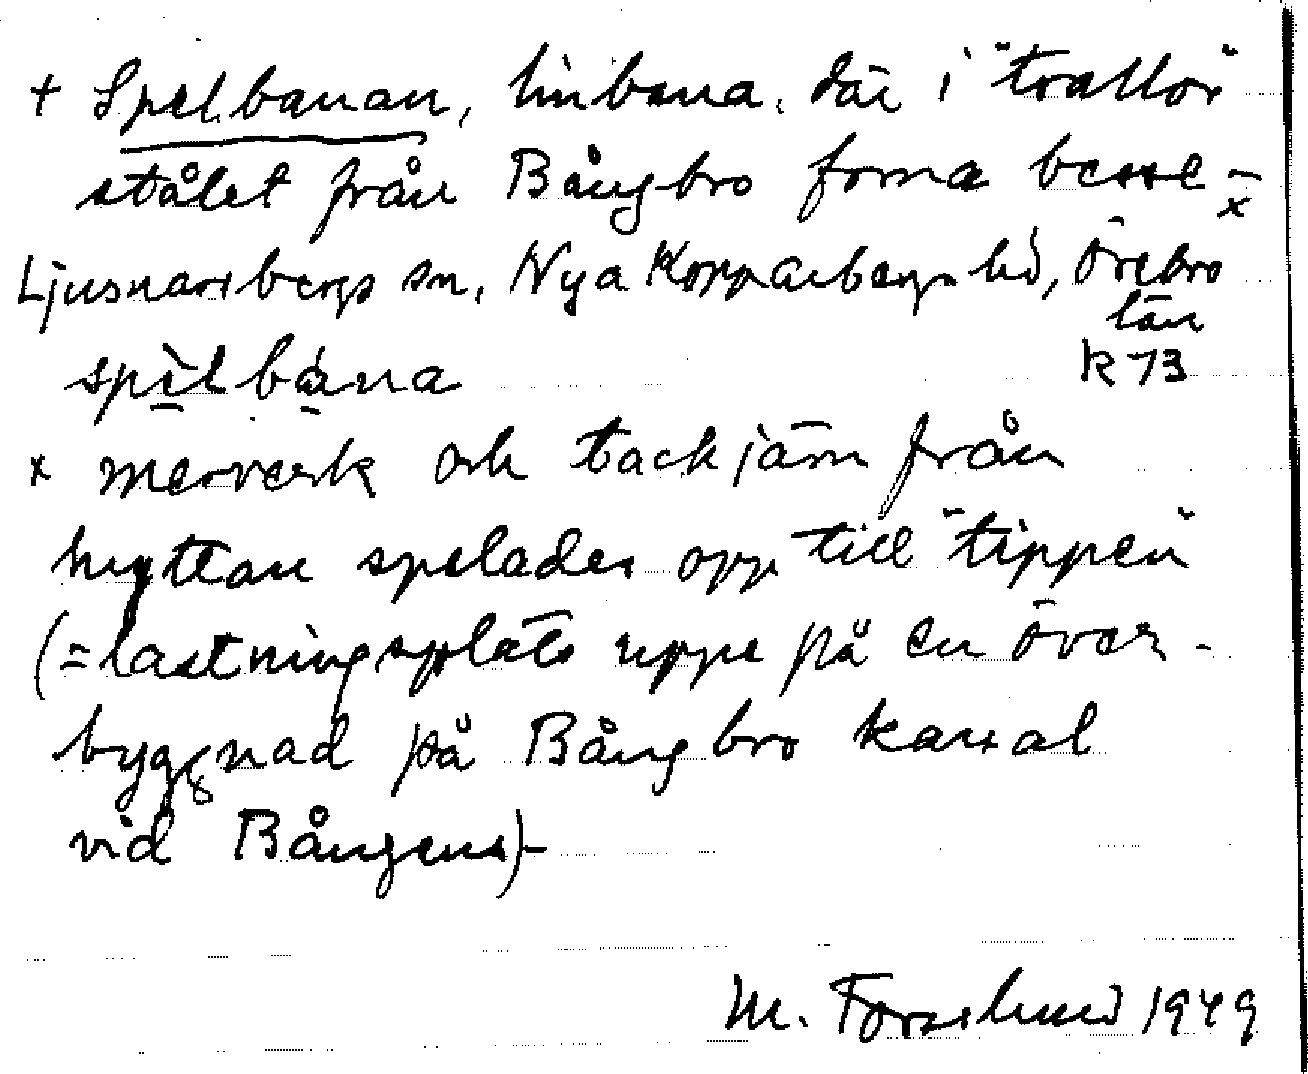 + Spelbanan, linbana, där i "trallor"
stålet från Bångbro forna besse-
x
Ljusnarsbergs sn, Nya Kopparbergs hd, Örebro
län
spelbana
R 73
x merverk och tackjärn från
hyttan spelades opp till "tippen"
(= lastningsplats uppe på en över-
byggnad på Bångbro kanal
vid Bångens)-
M. Forslund 1949